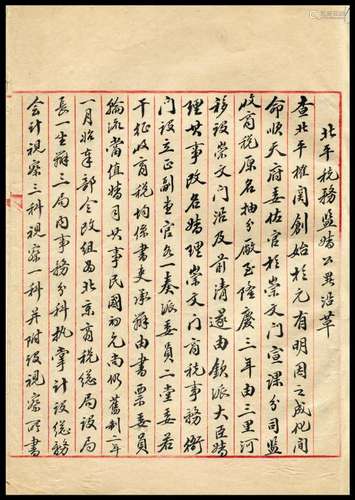 北平稅務監督公署沿革
查北平榷関創始於元有明因之成化間
命順天府委佐官於崇文門宣課分司監
收商稅原名抽分廠至隆慶三年由三里河
移設崇文門沿及前清遂由欽派大臣督
理其事改名督理崇文門商稅事務衙
門設立正副堂官各一奏派委員二堂委若
干征收商稅均係書吏承辦由書票委員
輪流當值督同其事民國初元尚仍舊制二年
一月始奉部令改組為北京商稅總局設局
長一坐辦三局內事務分科執掌計設總務
會計視察三科視察一科并附設視察所書